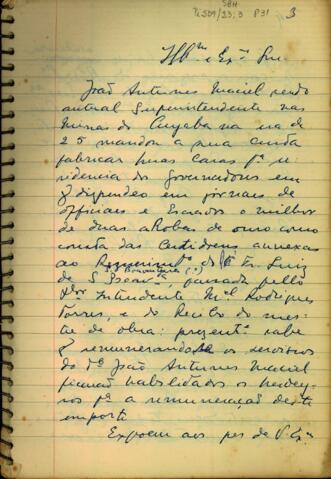 SBH
Pi 509/23; 3 P31
3
Illmo e Exmo Snr
João Antunes Maciel sendo
actual Superintendente nas
Minas do Cuyabá na era de
25 mandou a sua custa
fabricar huas casas pa re
zidencia dos Governadores em
q dispendeo em jornaes de
officiaes e Escravos o milhor
de duas aRobas de ouro como
consta das Certidoens annexas
ao Requerimto do Pe Fr. Luiz
Boaventura (?)
de S. , passada pello
Intendente Mel Rodrigues
Torres, e do Recibo do mes
tre de obra: prezenta sabe
q remunerandose os servissos
do dº João Antunes Maciel
ficarião habilidados os herdey-
ros pa a remuneração deste
importe
Expoem aos pes de V. Exa